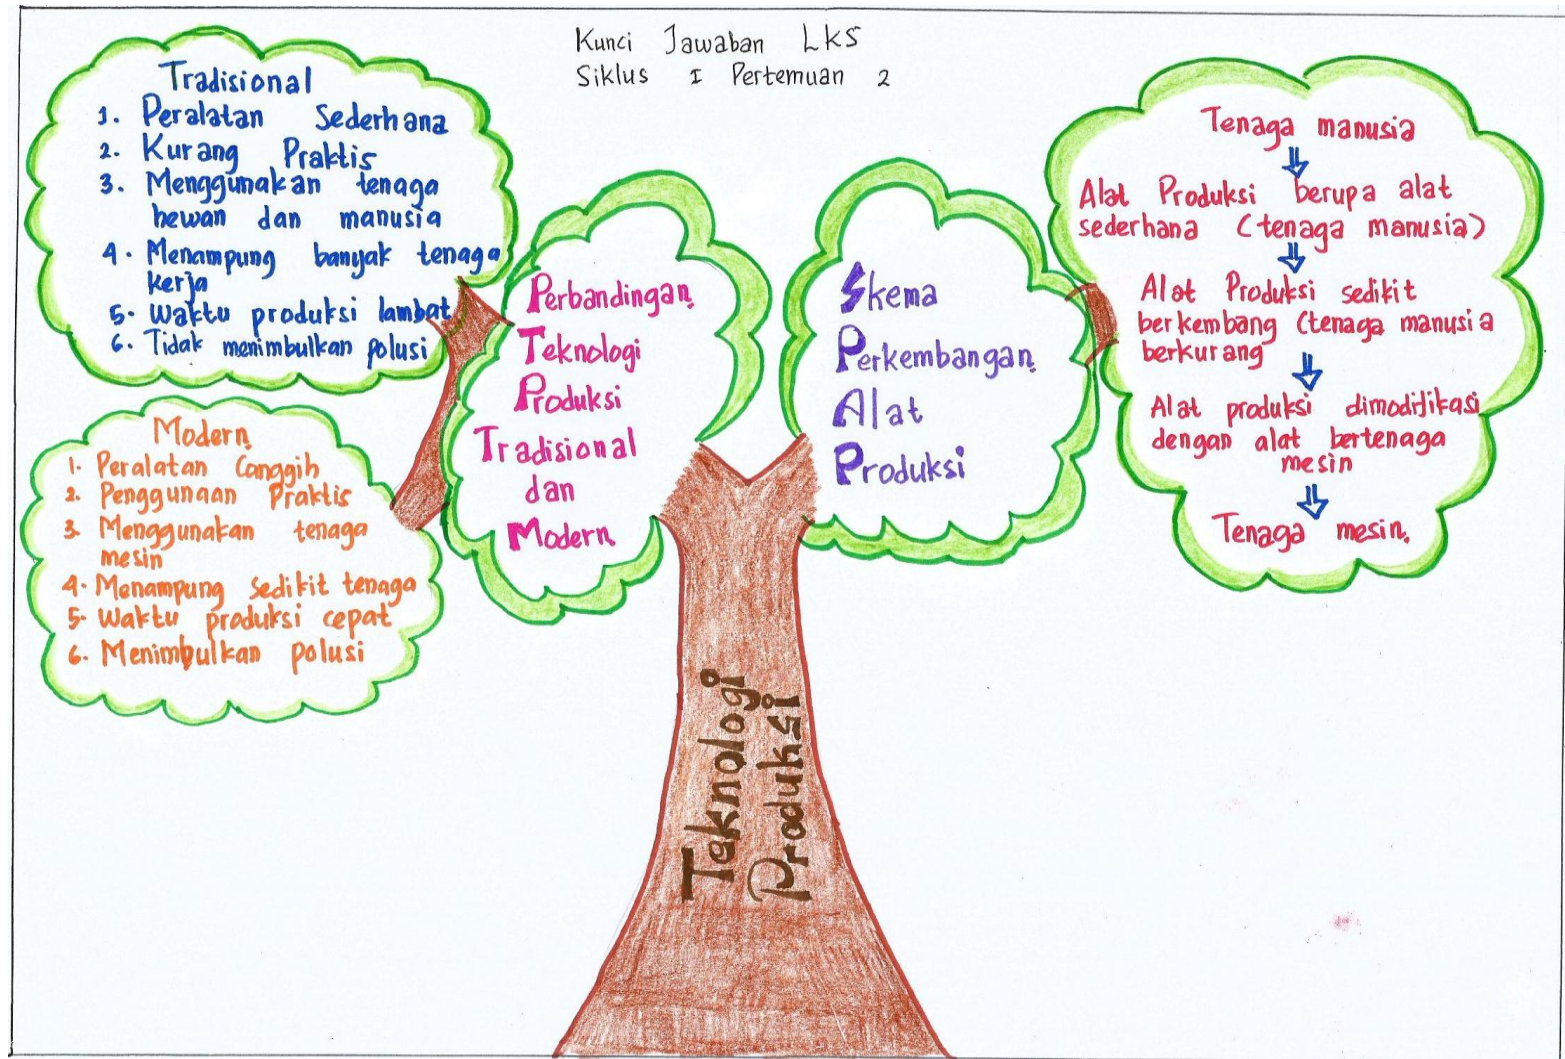 Kunci Jawaban LKS
Siklus I Pertemuan 2
Tradisional
1. Peralatan Sederhana
2. Kurang Praktis
3. Menggunakan tenaga
hewan dan manusia
4. Menampung banyak tenaga
kerja
5. Waktu produksi lambat
6. Tidak menimbulkan polusi
Modern
1. Peralatan Canggih
2. Penggunaan Praktis
3. Menggunakan tenaga
mesin
4. Menampung Sedikit tenaga
5. Waktu produksi cepat
6. Menimbulkan polusi
Perbandingan
Teknologi
Produksi
Tradisional
dan
Modern
Skema
Perkembangan
Alat
Produksi
Tenaga manusia
⇓
Alat Produksi berupa alat
sederhana (tenaga manusia)
⇓
Alat Produksi sedikit
berkembang (tenaga manusia
berkurang
⇓
Alat produksi dimodifikasi
dengan alat bertenaga
mesin
⇓
Tenaga mesin.
Teknologi
Produksi